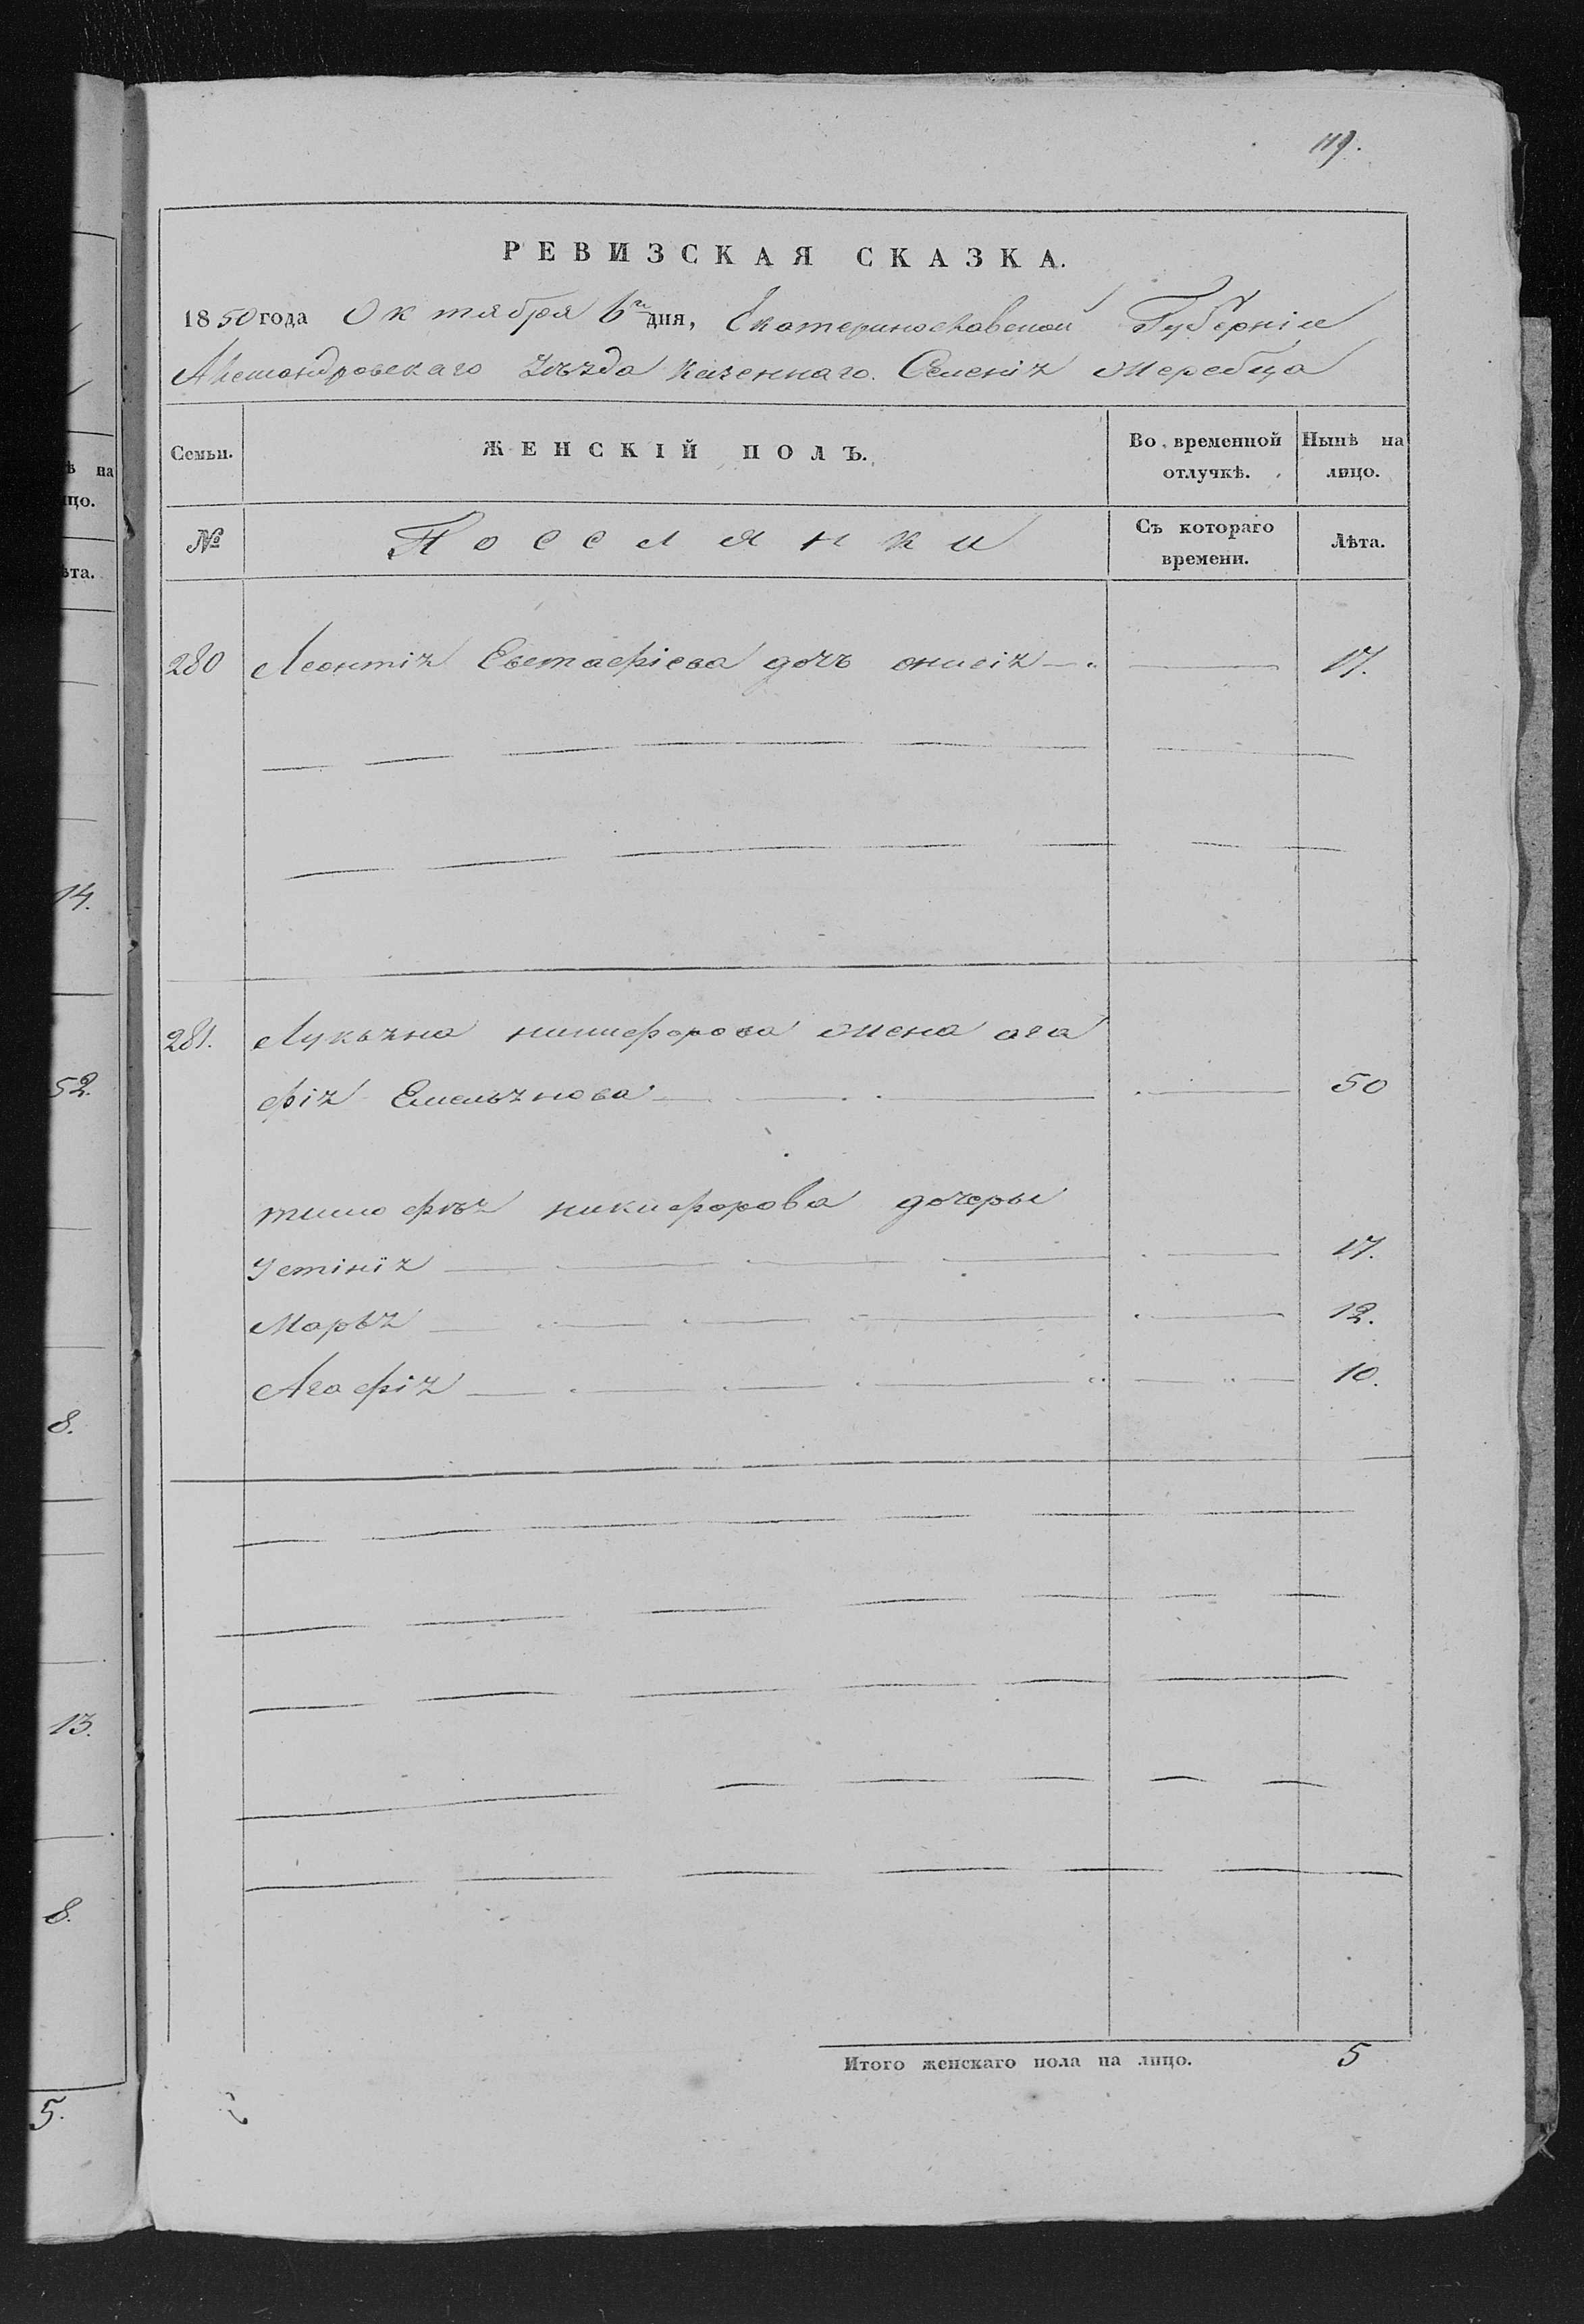 119.
РЕВИЗСКАЯ СКАЗКА.
1850 года Октября 6го дня, Екатеринославской Губерніи
Александровскаго уѣзда казеннаго Селенія Жеребца
Семьи. ЖЕНСКІЙ ПОЛЪ. Во временной отлучкѣ. Нынѣ на лицо.
№ Посселянки Съ котораго времени. Лѣта.
280 Леонтія Евстафіева дочь онисія 17.
281. Лукьяна никифорова жена ага
фія Емельянова 50
тимофѣя никифорова дочеры
Устінія 17.
Марья 12.
Агафія 10.
Итого женскаго пола на лицо. 5
ѣ на
цо.
ѣта.
14.
52.
8.
13.
8.
5.